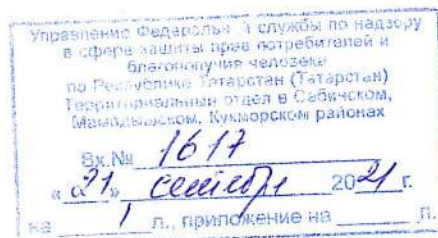 Управление Федеральной службы по надзору
в сфере защиты прав потребителей и
благополучия человека
по Республике Татарстан (Татарстан)
Территориальный отдел в Сабинском,
Мамадышском, Кукморском районах
Вх.№ 1617
« 21 » сентября 2021 г.
на 1 л., приложение на ____ л.